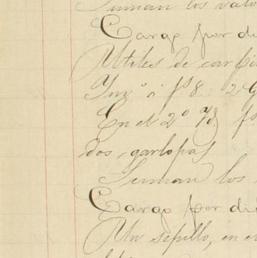 Suman los valo
Cargo por di
Utiles de carpin
En el 2º
dos garlopas
Suman los
Cargo por di
Un sepillo, en